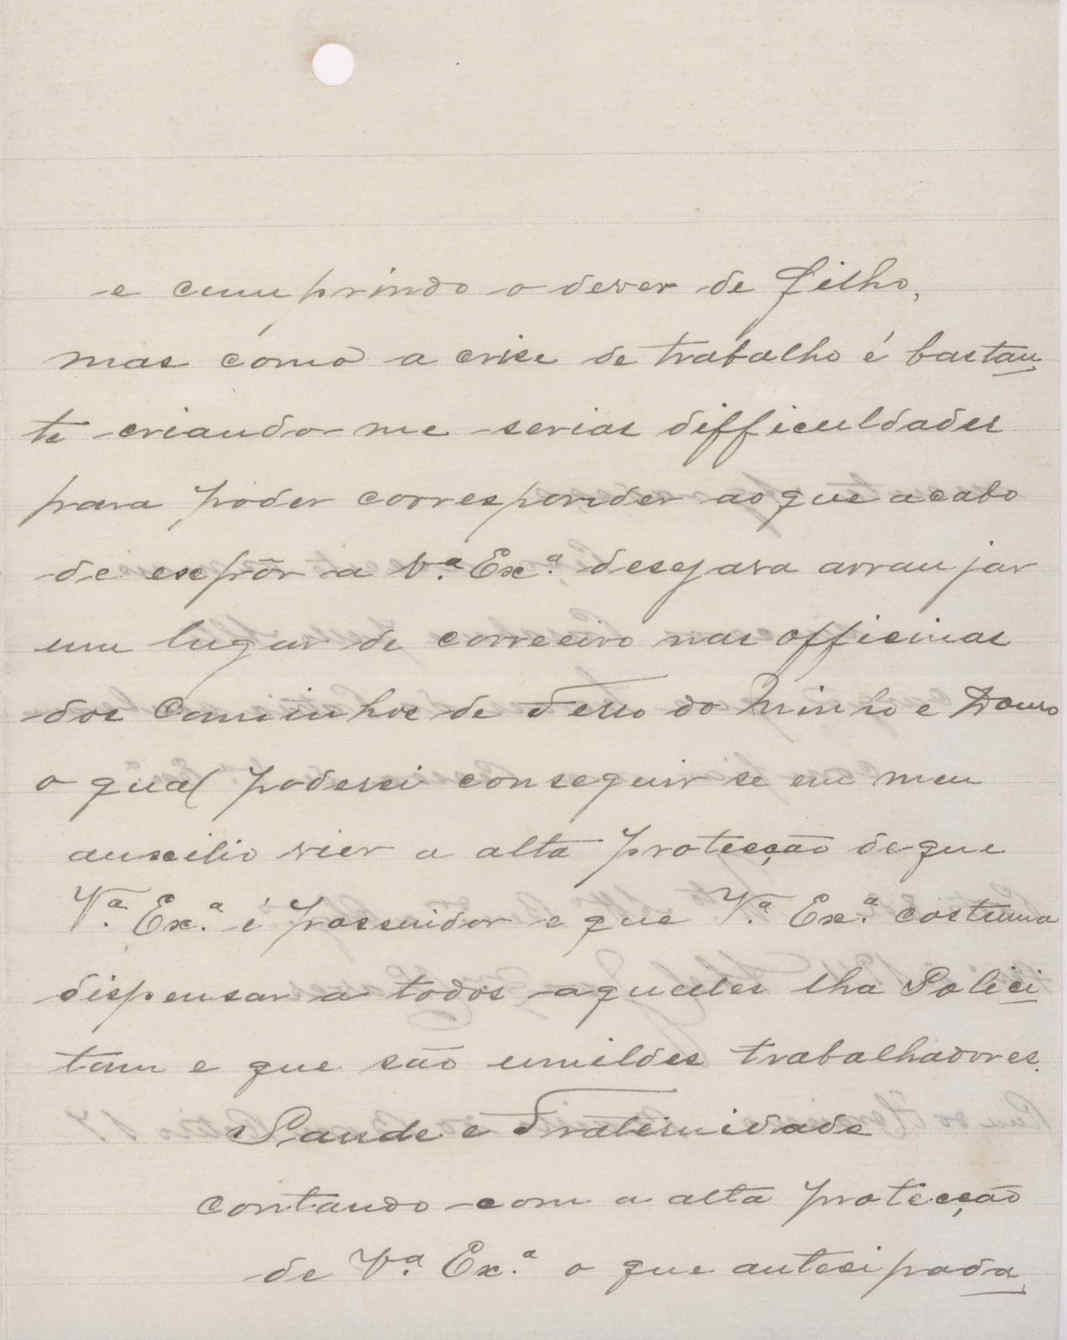 e cumprindo o dever de filho,
mas como a crise de trabalho é bastan
te criando-me serias difficuldades
para poder corresponder ao que acabo
de expôr a V.ª Ex.ª desejava arranjar
um lugar de correeiro nas officinas
dos Caminhos de Ferro do Minho e Douro
o qual poderei conseguir se em meu
auxilio vier a alta protecção de que
V.ª Ex.ª é possuidor e que V.ª Ex.ª costuma
dispensar a todos aqueles lha Solici
tam e que são umildes trabalhadores.
Saude e Fraternidade
contando com a alta protecção
de V.ª Ex.ª o que antecipada